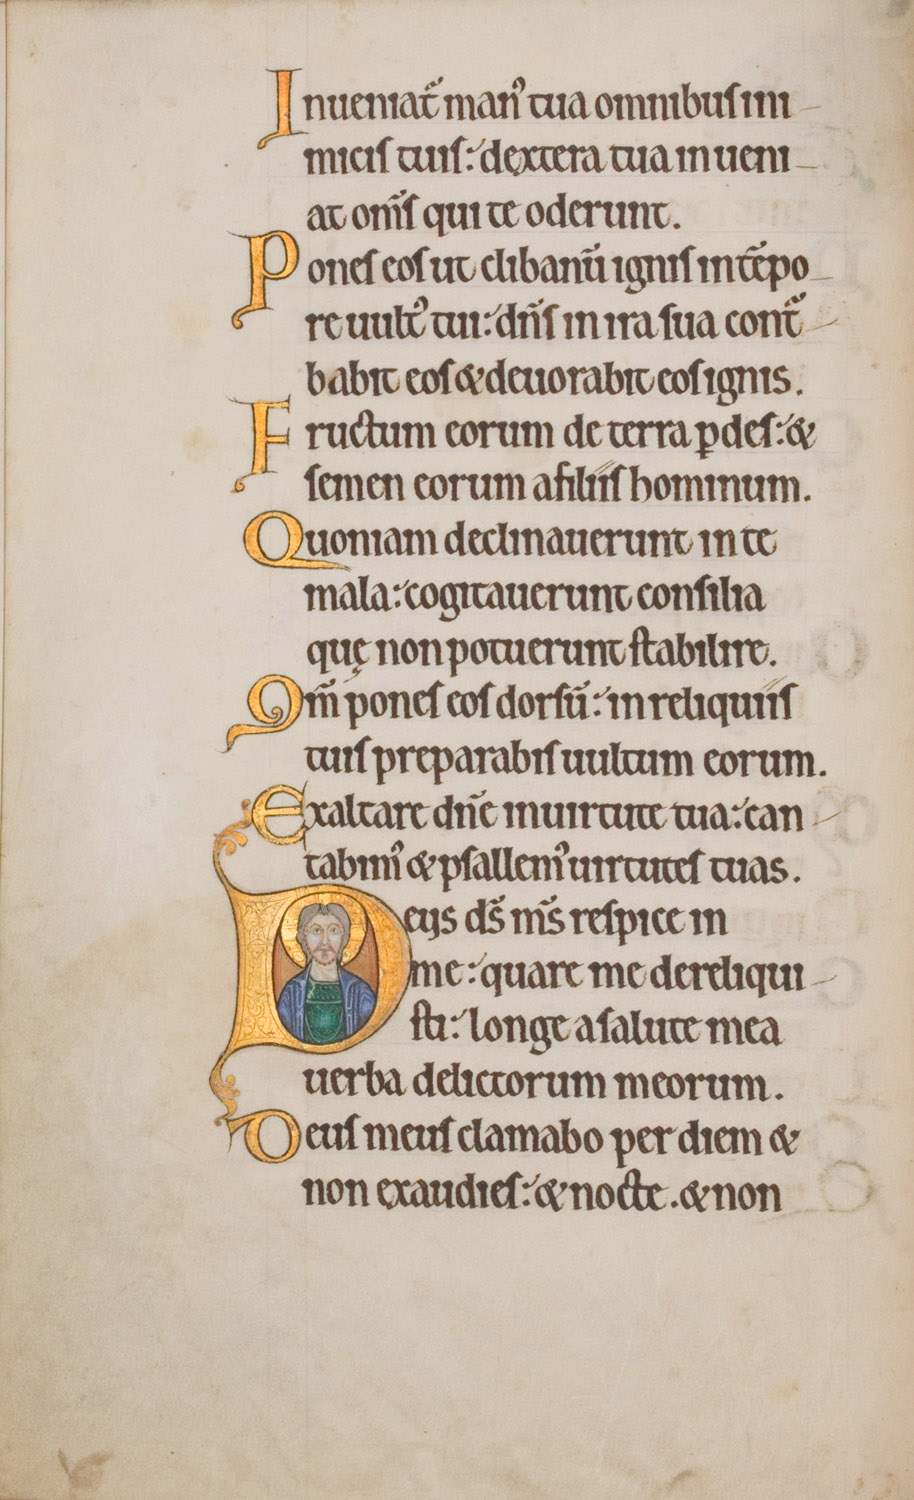 Inueniat᷑ man᷒ tua omnibus ini
micis tuis: dextera tua inueni
at om̅s qui te oderunt.
Pones eos ut clibanū ignis in tēpo
re uult᷒ tui: dn̅s in ira sua cont᷑
babit eos & deuorabit eos ignis.
Fructum eorum de terra ꝑdes: &
semen eorum a filiis hominum.
Quoniam declinauerunt in te
mala: cogitauerunt consilia
quę non potuerunt stabilire.
Qm̅ pones eos dorsū: in reliquiis
tuis preparabis uultum eorum.
Exaltare dn̅e in uirtute tua: can
tabim᷒ & psallem᷒ uirtutes tuas.
Deus ds̅ ms̅ respice in
me: quare me dereliqui
sti: longe a salute mea
uerba delictorum meorum.
Deus meus clamabo per diem &
non exaudies: & nocte . & non